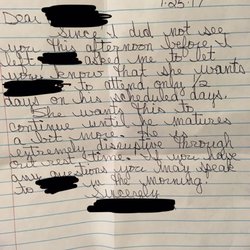 1-25-17
Dear
Since I did not see
you this afternoon before I
left asked me to let
you know that she wants
to attend only 1/2
days on his scheduled days.
She wants this to
continue until he matures
a bit more. He is
extremely disruptive through
out rest time. If you have
any questions you may speak
to in the morning.
Sincerely